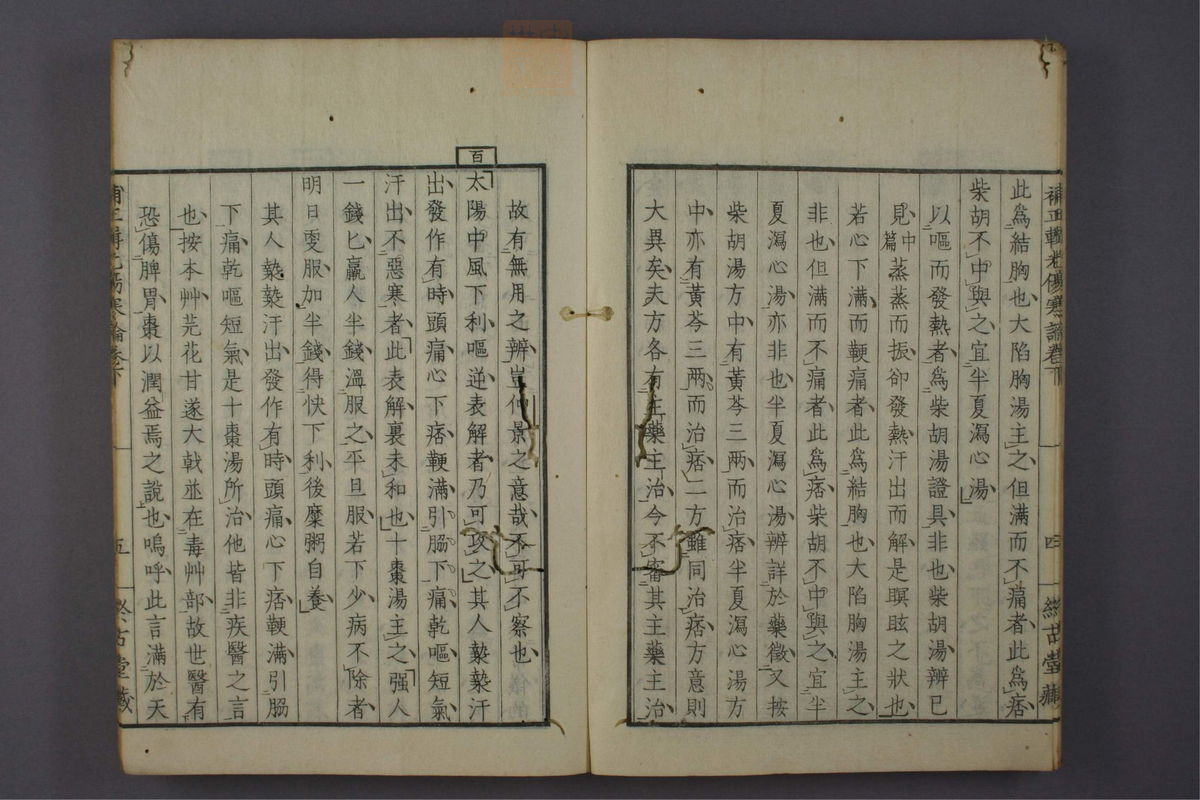 補正輯光傷寒論卷下 四
此爲結胸也大陷胸湯主之但滿而不痛者此爲痞
柴胡不中與之宜半夏瀉心湯
以嘔而發熱者爲柴胡湯證具非也柴胡湯辨已
見中篇蒸蒸而振卻發熱汗出而解是瞑眩之狀也
若心下滿而鞕痛者此爲結胸也大陷胸湯主之
非也但滿而不痛者此爲痞柴胡不中與之宜半
夏瀉心湯亦非也半夏瀉心湯辨詳於藥徵又按
柴胡湯方中有黃芩三兩而治痞半夏瀉心湯方
中亦有黃芩三兩而治痞二方雖同治痞方意則
大異矣夫方各有主藥主治今不審其主藥主治
故有無用之辨豈仲景之意哉不可不察也
百
太陽中風下利嘔逆表解者乃可攻之其人漐漐汗
出發作有時頭痛心下痞鞕滿引脇下痛乾嘔短氣
汗出不惡寒者此表解裏未和也十棗湯主之强人
一錢匕羸人半錢溫服之平旦服若下少病不除者
明日更服加半錢得快下利後糜粥自養
其人漐漐汗出發作有時頭痛心下痞鞕滿引脇
下痛乾嘔短氣是十棗湯所治他皆非疾醫之言
也按本艸芫花甘遂大戟並在毒艸部故世醫有
恐傷脾胃棗以潤益焉之說也嗚呼此言滿於天
五